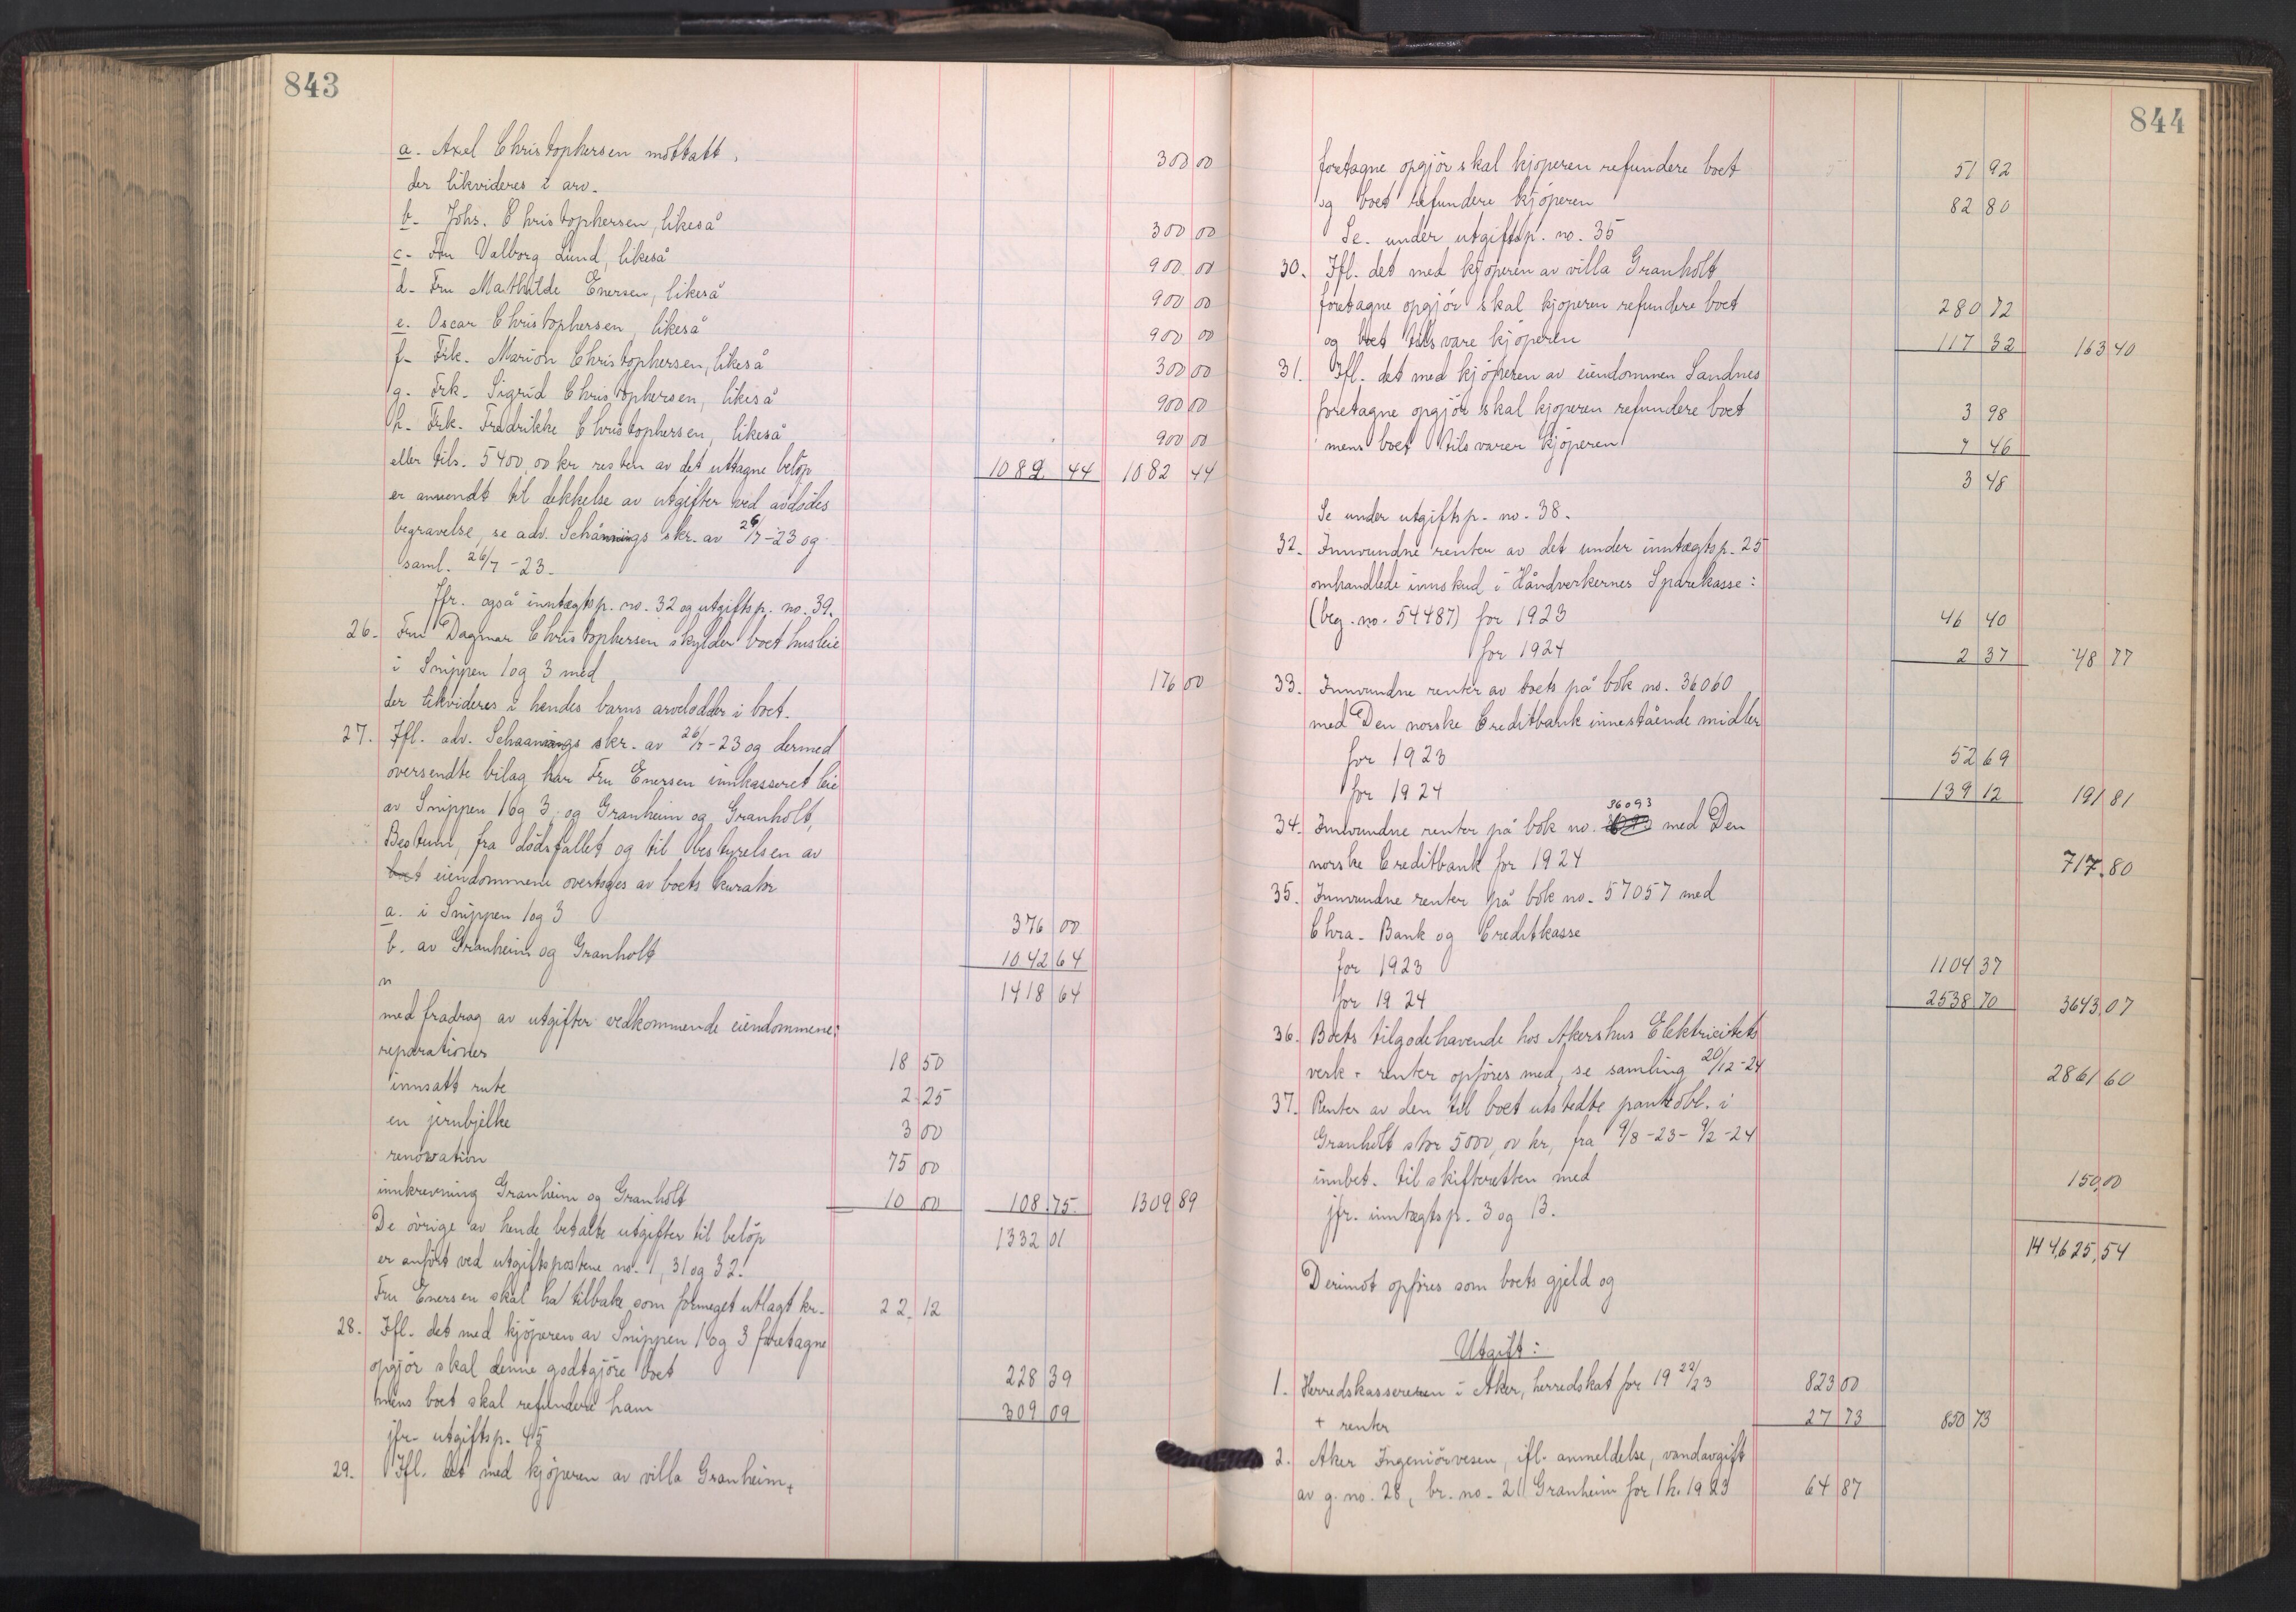 843
a. Axel Christophersen mottatt, 300 00
der likvideres i arv.
b. Johs. Christophersen, likeså 300 00
c. Fru Valborg Lund, likeså 900 00
d. Fru Mathilde Enersen, likeså 900 00
e. Oscar Christophersen, likeså 900 00
f. Frk. Marion Christophersen, likeså 300 00
g. Frk. Sigrid Christophersen, likeså 900 00
h. Frk. Fredrikke Christophersen, likeså 900 00
eller tils. 5400,00 kr resten av det uttagne beløp 1082 44 1082 44
er anvendt til dekkelse av utgifter ved avdødes
begravelse, se adv. Schånnings skr. av 26/7-23 og
saml. 26/7-23.
Jfr. også inntægtsp. no. 32 og utgiftsp. no. 39.
26. Fru Dagmar Christophersen skylder boet husleie
i Snippen 1 og 3 med 176 00
der likvideres i hendes barns arvelodder i boet.
27. Ifl. adv. Schaanings skr. av 26/7-23 og dermed
oversendte bilag har Fru Enersen innkasseret leie
av Snippen 1 og 3, og Granheim og Granholt,
Bestum, fra dødsfallet og til bestyrelsen av
boet eiendommene overtoges av boets kurator
a. i Snippen 1 og 3 376 00
b. av Granheim og Granholt 1042 64
1418 64
med fradrag av utgifter vedkommende eiendommene:
reparationer 18 50
innsatt rute 2 25
en jernbjelke 3 00
renovation 75 00
innkrevning Granheim og Granholt 10 00 108.75 1309 89
De øvrige av hende betalte utgifter til beløp 1332 01
er anført ved utgiftspostene no. 1, 31 og 32.
Fru Enersen skal ha tilbake som formeget utlagt kr. 22.12
28. Ifl. det med kjøperen av Snippen 1 og 3 foretagne
opgjør skal denne godtgjøre boet 228 39
mens boet skal refundere ham 309 09
jfr. utgiftsp. 45
29. Ifl. det med kjøperen av villa Granheim
844
foretagne opgjør skal kjøperen refundere boet 51 92
og boet refundere kjøperen 82 80
Se. under utgiftsp. no. 35
30. Ifl. det med kjøperen av villa Granholt
foretagne opgjør skal kjøperen refundere boet 280 72
og boet tilsvare kjøperen 117 32 163 40
31. Ifl. det med kjøperen av eiendommen Sandnes
foretagne opgjør skal kjøperen refundere boet 3 98
mens boet tilsvarer kjøperen 7 46
3 48
Se under utgiftsp. no. 38.
32. Innvundne renter av det under inntægtsp. 25
omhandlede innskud i Håndverkernes Sparekasse:
(beg. no. 54487) for 1923 46 40
for 1924 2 37 48 77
33. Innvundne renter av boets på bok no. 36060
med Den norske Creditbank innestående midler
for 1923 52 69
for 1924 139 12 191 81
34. Innvundne renter på bok no. 36093 med Den
norske Creditbank for 1924 717.80
35. Innvundne renter på bok no. 57057 med
Chra. Bank og Creditkasse
for 1923 1104 37
for 1924 2538 70 3643,07
36. Boets tilgodehavende hos Akershus Elektricitets
verk + renter opføres med, se samling 20/12-24 2861 60
37. Renter av den til boet utstedte panteobl. i
Granholt stor 5000,00 kr, fra 9/8-23-9/2-24
innbet. til skifteretten med 150,00
jfr. inntægtsp. 3 og 13.
144,625,54
Derimot opføres som boets gjeld og
Utgift:
1. Herredskassereren i Aker, herredskat for 19 22/23 823 00
+ renter 27 73 850 73
2. Aker Ingeniørvesen, ifl. anmeldelse, vandavgift
av g. no. 28, br. no. 211 Granheim for 1 h. 1923 64 87